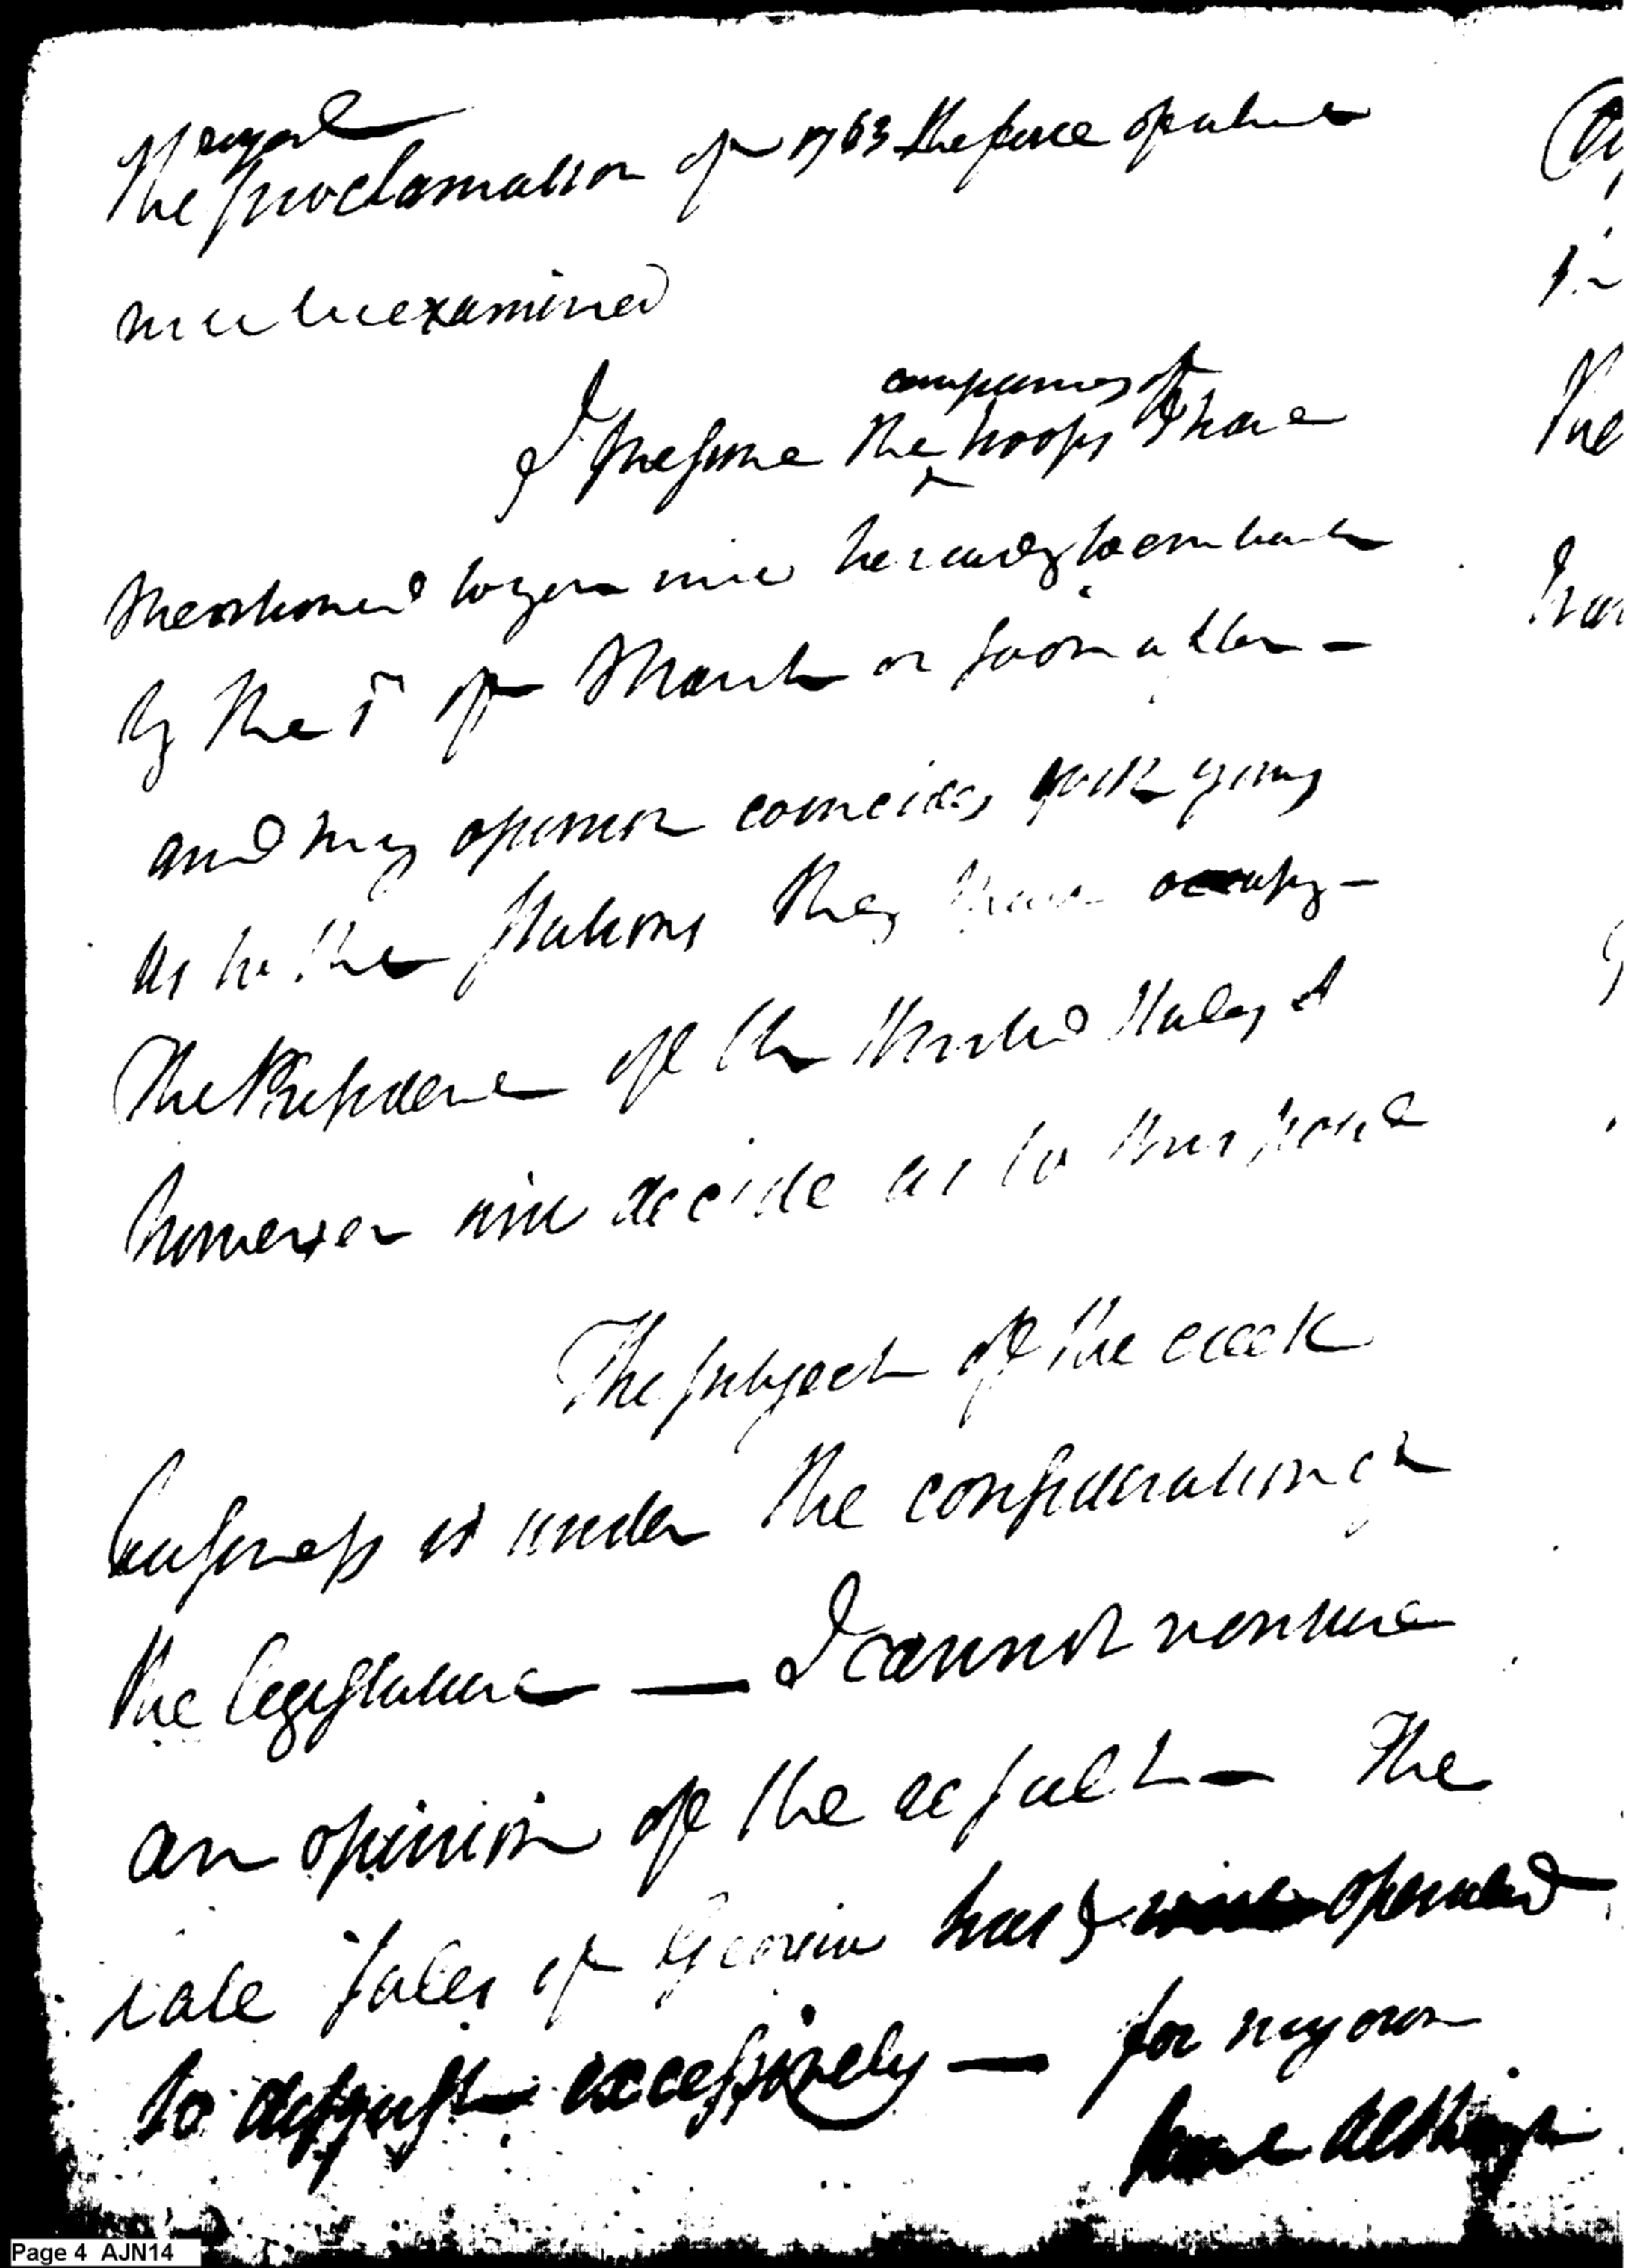 royal
The proclamation of 1763 the force of which
must be examined
companies of
I presume the troops I have
mentioned to you will be ready to embark
by the 1st of March or soon after –
and my opinion coincides with yours
as to the stations they occupy –
The President of the United States
however will decide as to this point
The subject of the creek
business is under the consideration of
the legislature — I cannot venture
an opinion of the result – The
late sales of Georgia has operated
to disgust excessively — for my own
Page 4 AJN14